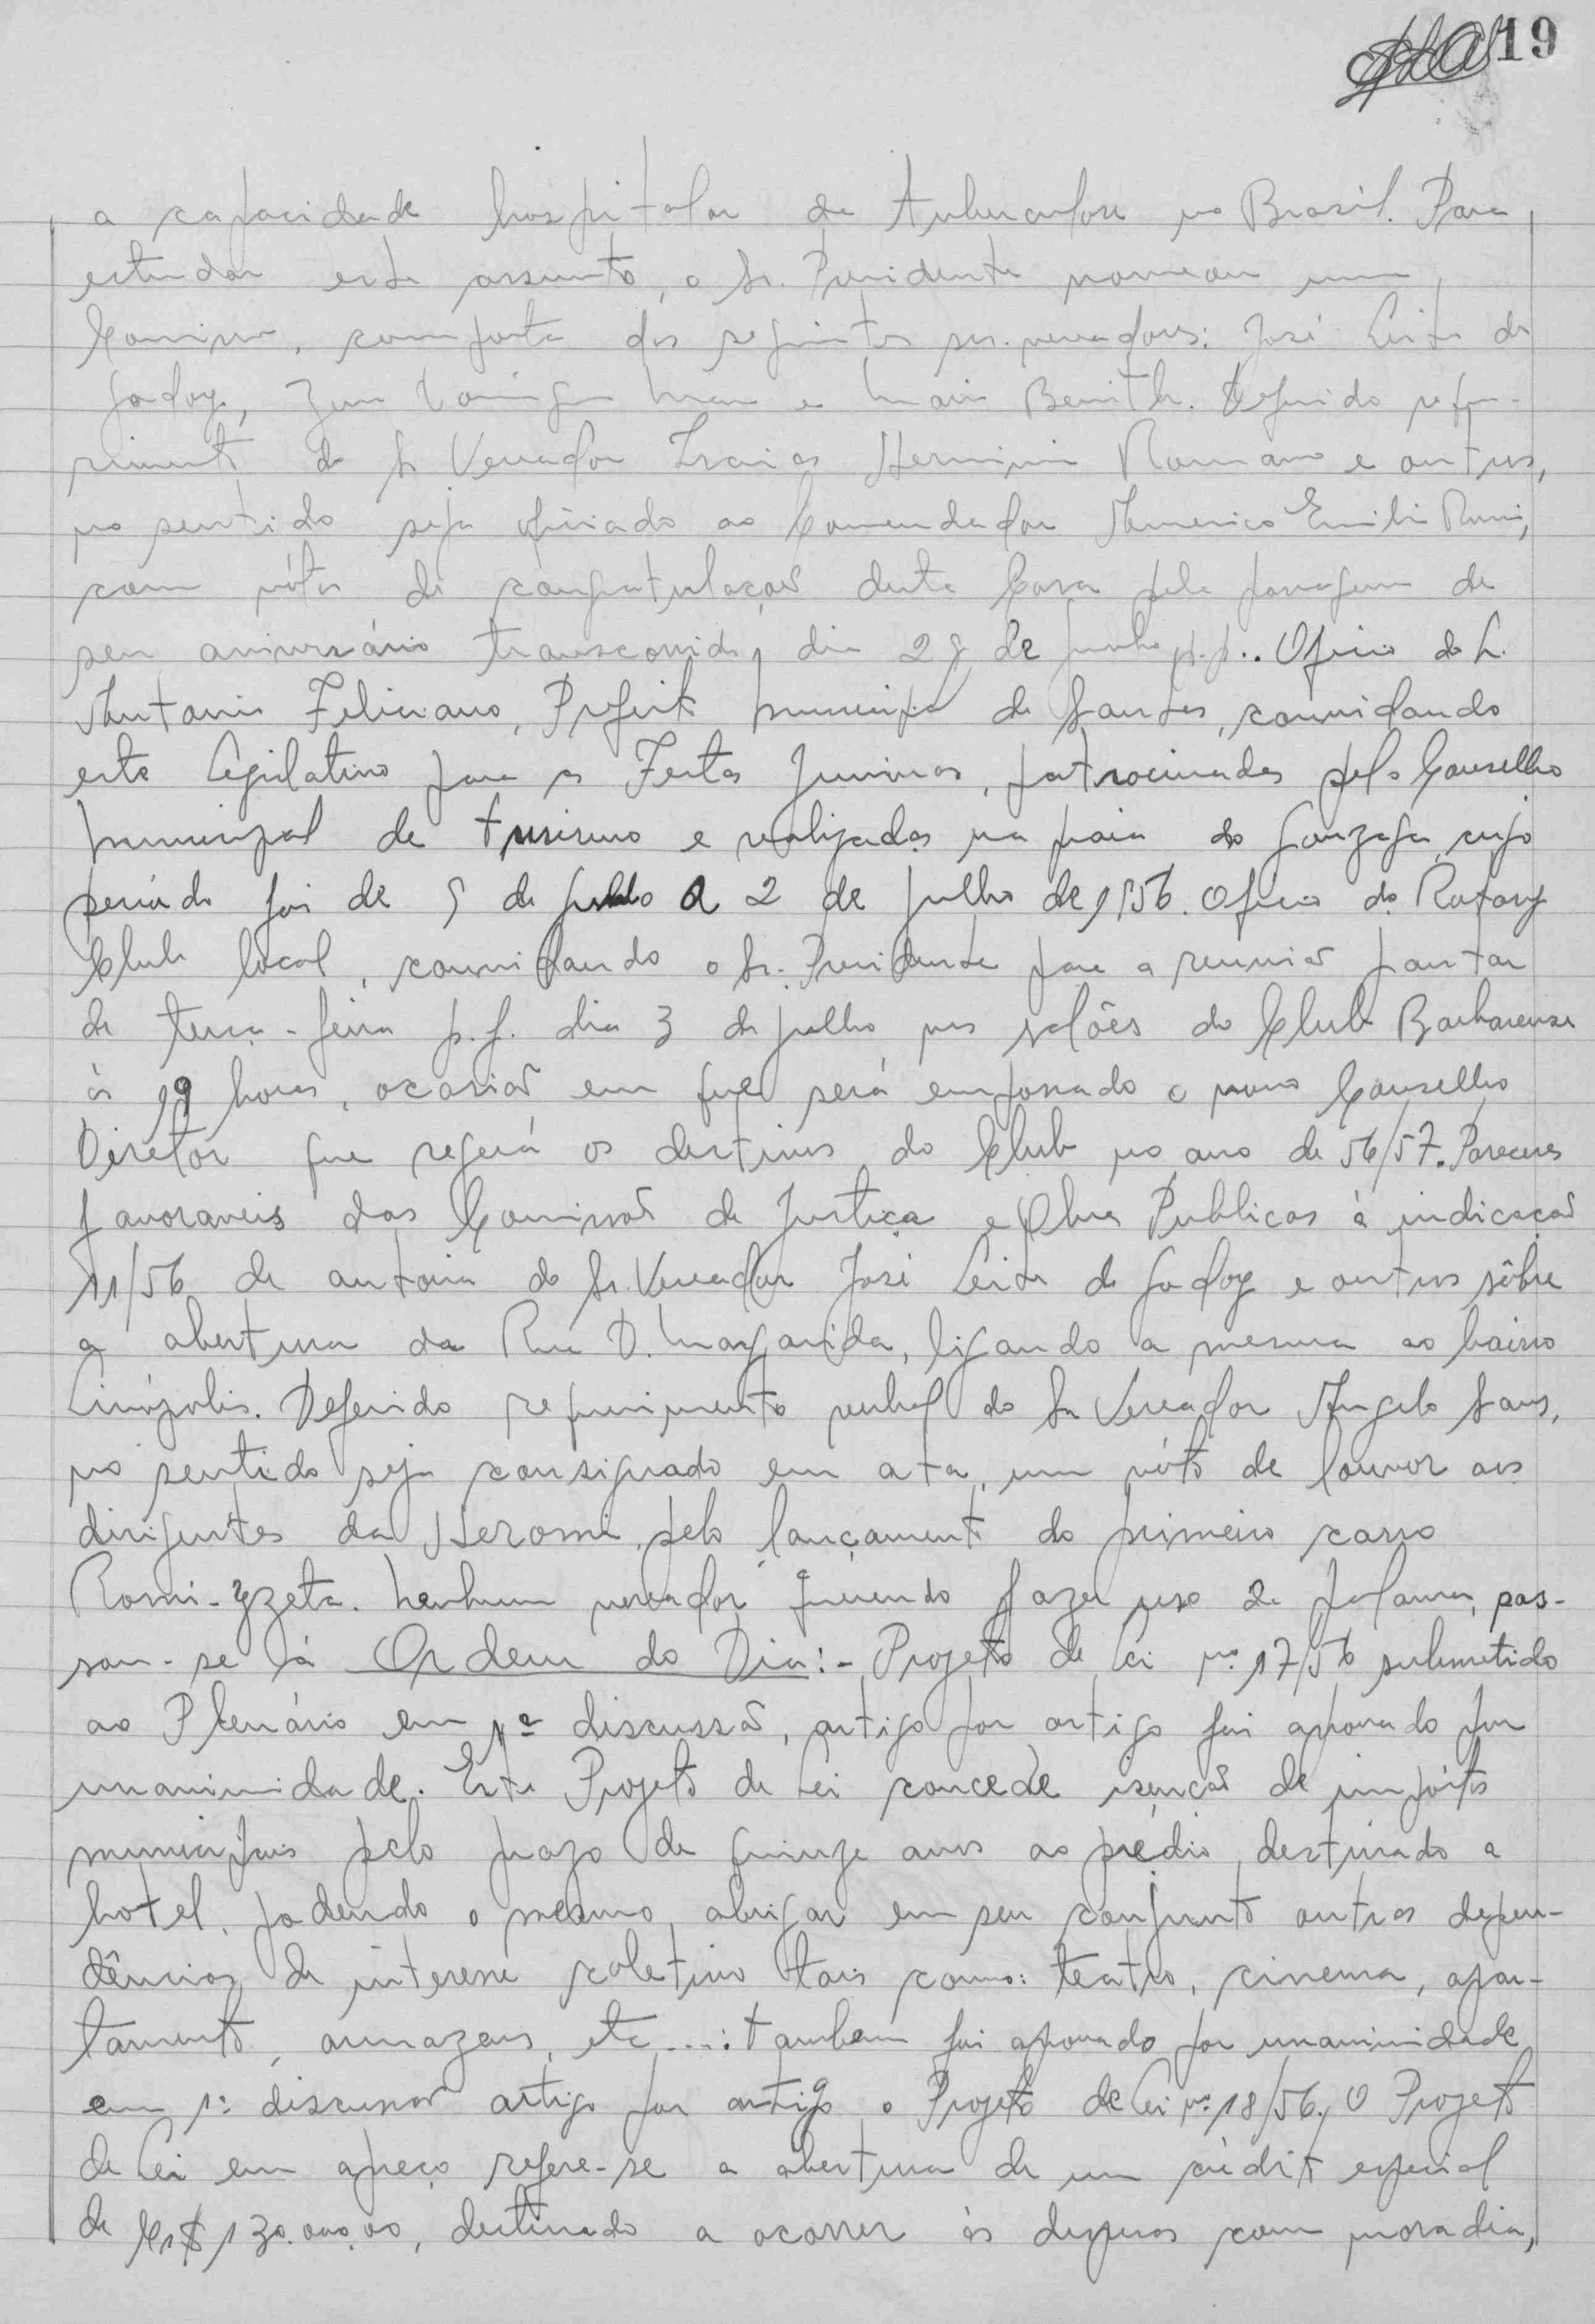 19
a capacidade hospitalar da tuberculose no Brasil. Para
estudar este assunto, o Sr. Presidente nomeou uma
Comissão, composta dos seguintes srs. vereadores: José Leite de
Godoy, e Benith. Deferido reque-
rimento do Sr Vereador Izaias Herminio Romano e outros,
no sentido seja oficiado ao Comendador Americo Emilio Romi,
com vótos de congratulações desta Casa pela passagem de
seu aniversário transcorrido, dia 28 de Junho p.p.. Oficio do Sr.
Antonio Feliciano, Prefeito Municipal de Santos, convidando
este Legislativo para as Festas Juninas, patrocinadas pelo Conselho
Municipal de turismo e realizadas na praia do Gonzaga, cujo
periodo foi de 9 de a 2 de julho de 1956. Oficio do Rotary
Club local, convidando o Sr. Presidente para a reunião jantar
de terça-feira p.f. dia 3 de julho nos salões do Club Barbarense
ás 19 horas, ocasião em que será empossado o novo Conselho
Diretor que regerá os destinos do Club no ano de 56/57. Pareceres
favoraveis das Comissões de Justiça e Obras Publicas à indicação
11/56 de autoria do Sr. Vereador José Leite de Godoy e outros sôbre
a abertura da Rua D. Margarida, ligando a mesma ao bairro
Linópolis. Deferido requerimento verbal do Sr Vereador Angelo Sans,
no sentido seja consignado em ata, um vóto de louvor aos
dirigentes da pelo lançamento do primeiro carro
Romi-Yzeta. Nenhum vereador querendo fazer uso da palavra, pas-
sou-se à Ordem do Dia:- Projeto de Lei nº 17/56 submetido
ao Plenário em 1ª discussão, artigo por artigo foi aprovado por
unanimidade. Este Projeto de Lei concede isenção de impóstos
municipais pelo prazo de quinze anos ao prédio, destinado a
hotel, podendo o mesmo, abrigar em seu conjunto outras depen-
dências de interesse coletivo tais como: teatro, cinema, apar-
tamento, armazens, etc....: tambem foi aprovado por unanimidade
em 1ª discussão artigo por artigo o Projeto de Lei nº 18/56. O Projeto
de Lei em apreço refere-se a abertura de um crédito especial
de Cr$ 130.000,00, destinado a ocorrer ás despesas com moradia,